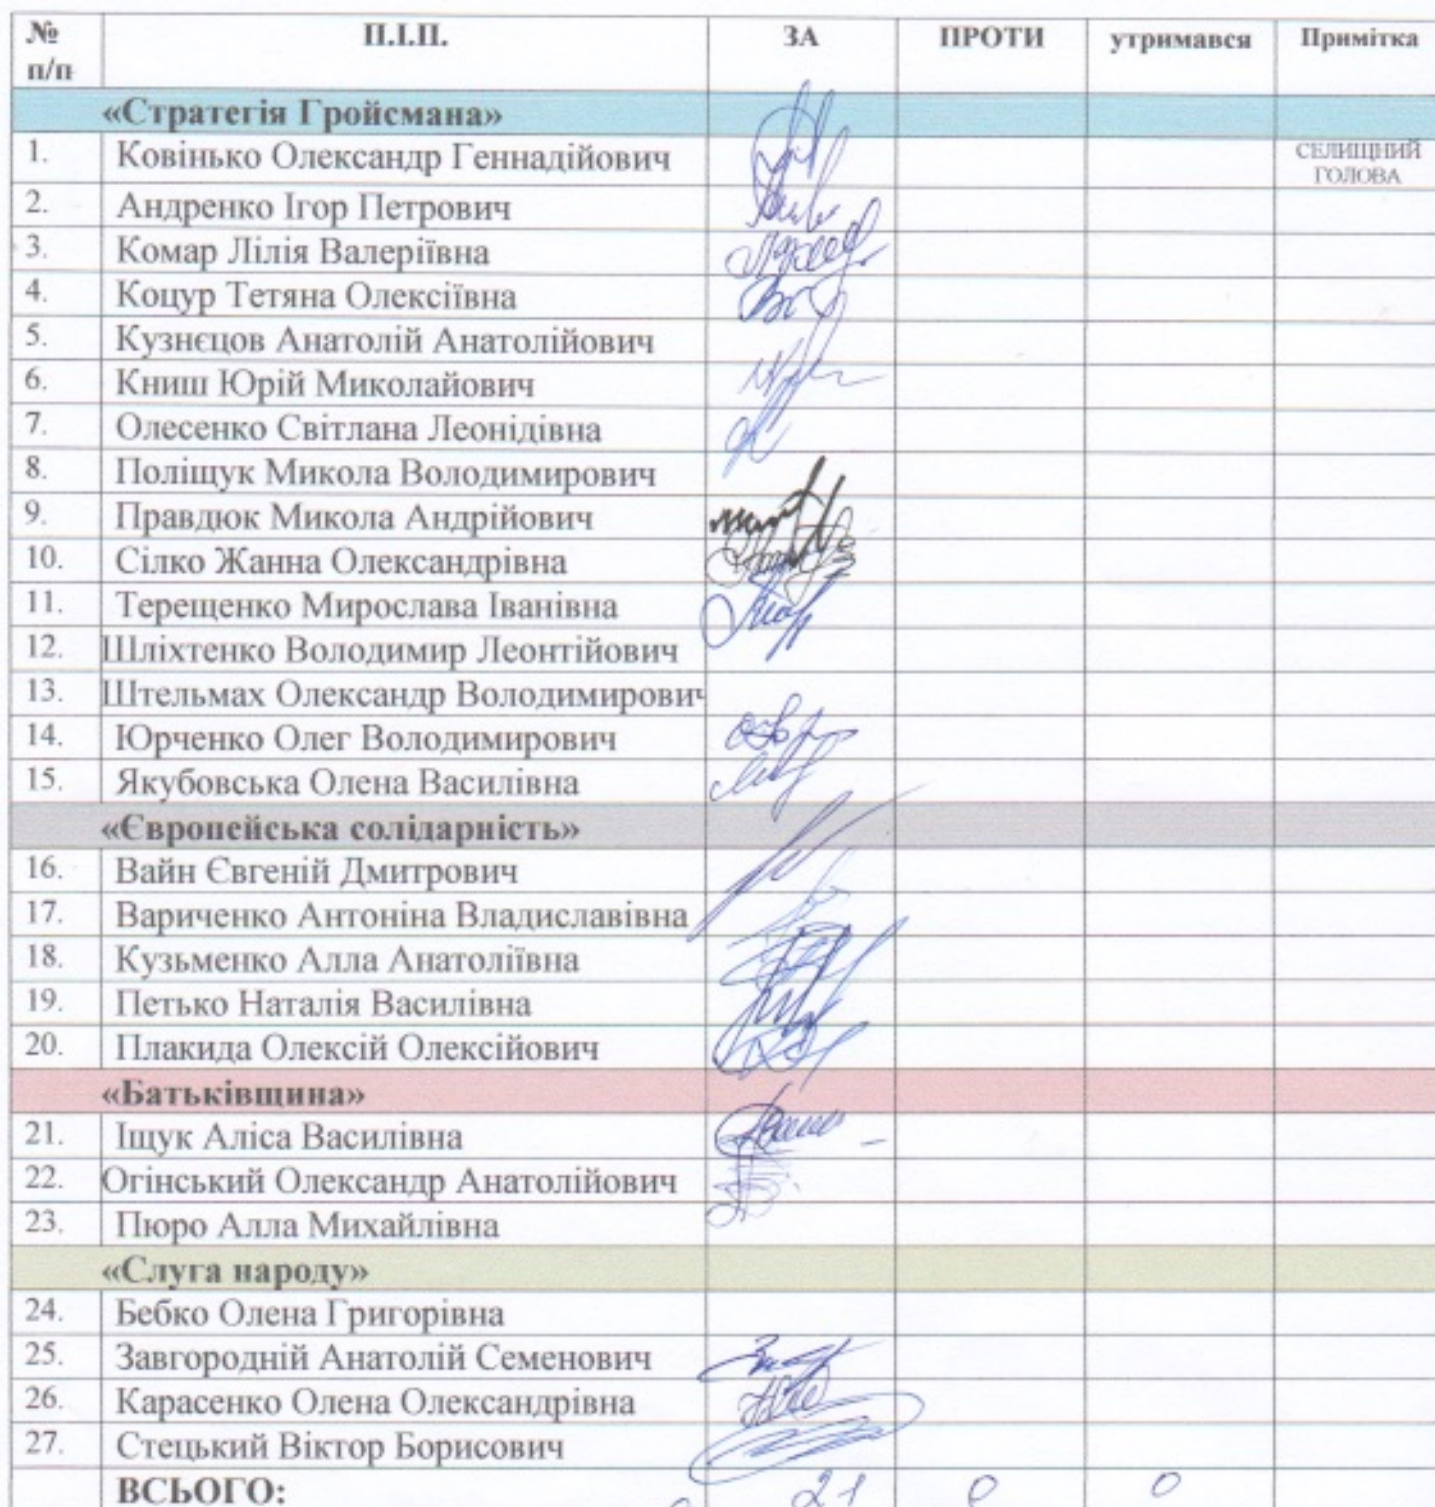 № п/п П.І.П. ЗА ПРОТИ утримався Примітка
«Стратегія Гройсмана»
1. Ковінько Олександр Геннадійович СЕЛИЩНИЙ ГОЛОВА
2. Андренко Ігор Петрович
3. Комар Лілія Валеріївна
4. Коцур Тетяна Олексіївна
5. Кузнєцов Анатолій Анатолійович
6. Книш Юрій Миколайович
7. Олесенко Світлана Леонідівна
8. Поліщук Микола Володимирович
9. Правдюк Микола Андрійович
10. Сілко Жанна Олександрівна
11. Терещенко Мирослава Іванівна
12. Шліхтенко Володимир Леонтійович
13. Штельмах Олександр Володимирович
14. Юрченко Олег Володимирович
15. Якубовська Олена Василівна
«Європейська солідарність»
16. Вайн Євгеній Дмитрович
17. Вариченко Антоніна Владиславівна
18. Кузьменко Алла Анатоліївна
19. Петько Наталія Василівна
20. Плакида Олексій Олексійович
«Батьківщина»
21. Іщук Аліса Василівна
22. Огінський Олександр Анатолійович
23. Пюро Алла Михайлівна
«Слуга народу»
24. Бебко Олена Григорівна
25. Завгородній Анатолій Семенович
26. Карасенко Олена Олександрівна
27. Стецький Віктор Борисович
ВСЬОГО: 21 0 0